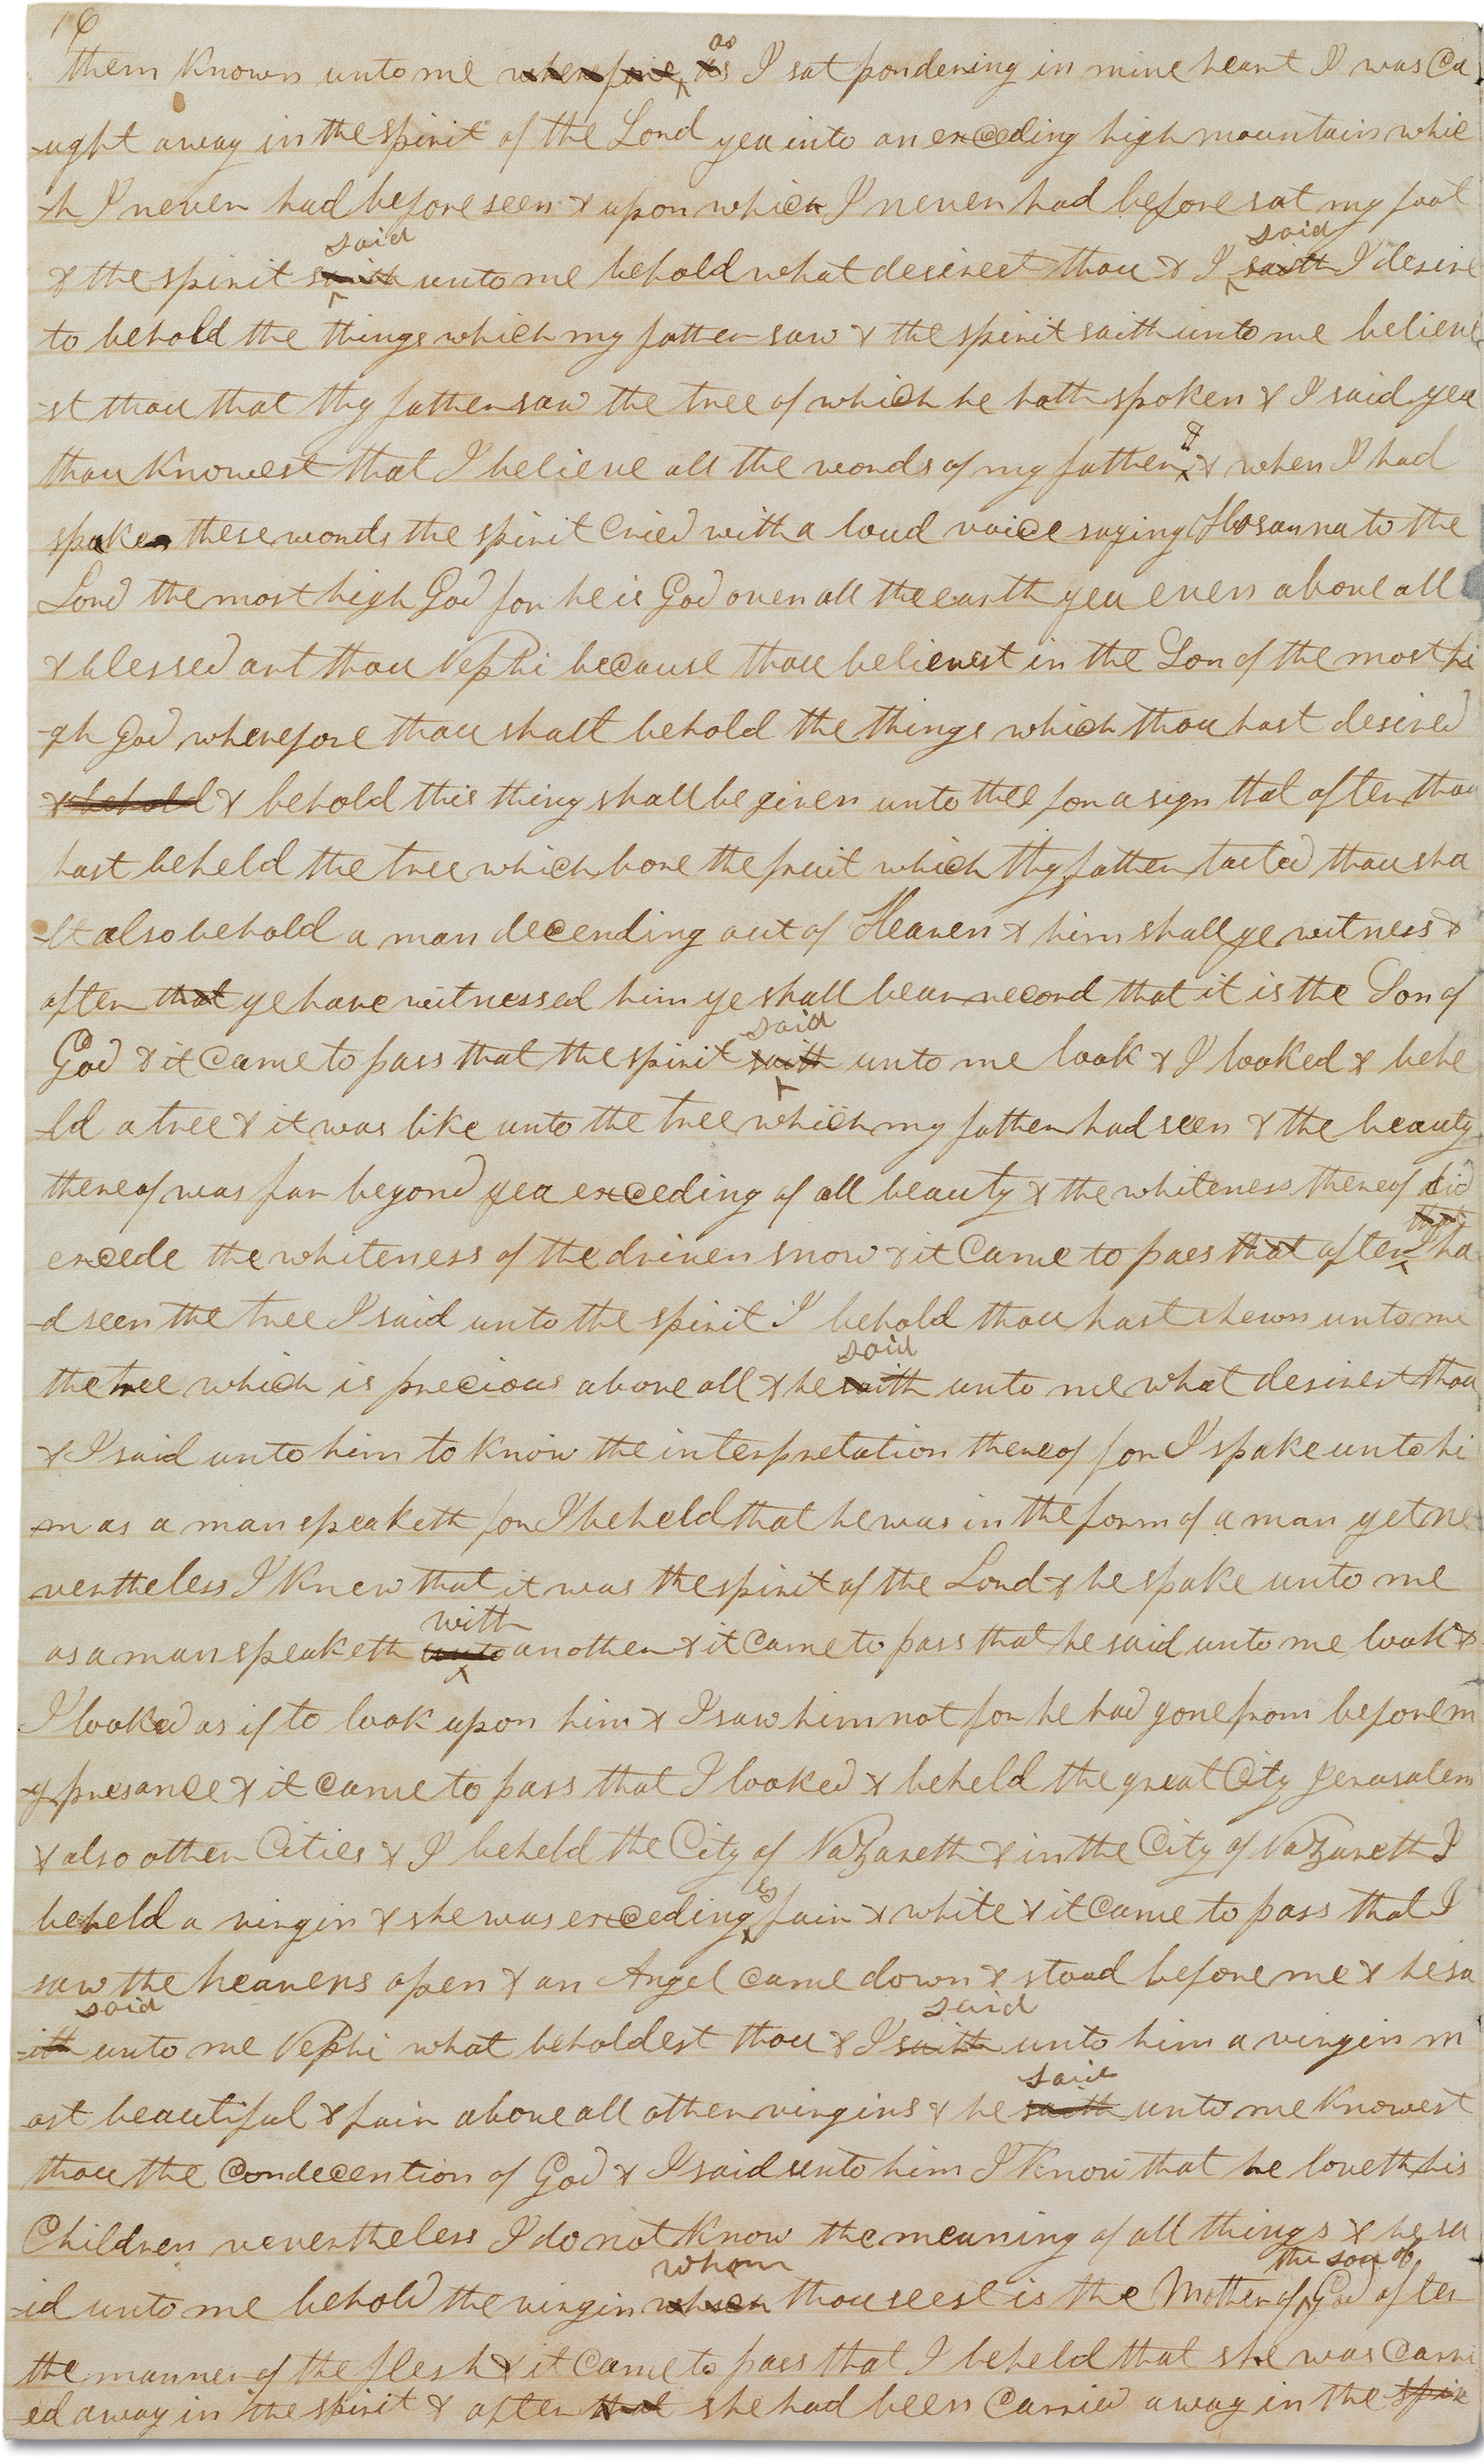 16
them known unto me wherefore as as I sat pondering in mine heart I was Ca
-ught away in the spirit of the Lord yea into an exceding high mountain whic
-h I never had before seen & upon which I never had before sat my foot
& the spirit saith said unto me behold what desirest thou & I saith said I desire
to behold the things which my father saw & the spirit saith unto me believe
-st thou that thy father saw the tree of which he hath spoken & I said yea
thou knowest that I believe all the words of my father & & when I had
spaken these words the spirit cried with a loud voice saying Hosanna to the
Lord the most high God for he is God over all the earth yea even above all
& blessed art thou Nephi because thou believest in the Son of the most hi
-gh God wherefore thou shalt behold the things which thou hast desired
& behold & behold this thing shall be given unto thee for a sign that after thou
hast beheld the tree which bore the fruit which thy father tasted thou sha
-lt also behold a man decending out of Heaven & him shall ye witness &
after that ye have witnessed him ye shall bear record that it is the Son of
God & it Came to pass that the spirit saith said unto me look & I looked & behe
-ld a tree & it was like unto the tree which my father had seen & the beauty
thereof was far beyond yea exceding of all beauty & the whiteness thereof did
excede the whiteness of the driven snow & it Came to pass that after that I ha
-d seen the tree I said unto the spirit I behold thou hast shewn unto me
the tree which is precious above all & he saith said unto me what desirest thou
& I said unto him to know the interpretation thereof for I spake unto hi
-m as a man speaketh for I beheld that he was in the form of a man yet ne
vertheless I knew that it was the spirit of the Lord & he spake unto me
as a man speaketh unto with another & it Came to pass that he said unto me look &
I looked as if to look upon him & I saw him not for he had gone from before m
-y presance & it came to pass that I looked & beheld the great City Jerusalem
& also other Cities & I beheld the City of Nazareth & in the City of Nazareth I
beheld a virgin & she was excedingly fair & white & it Came to pass that I
saw the heavens open & an Angel came down & stood before me & he sa
-ith said unto me Nephi what beholdest thou & I saith said unto him a virgin m
ost beautiful & fair above all other virgins & he saith said unto me knowest
thou the Condecention of God & I said unto him I know that he loveth his
Children nevertheless I do not know the meaning of all things & he sa
-id unto me behold the virgin which whom thou seest is the Mother of the son of God after
the manner of the flesh & it Came to pass that I beheld that she was Carri
ed away in the spirit & after that she had been Carried away in the spir